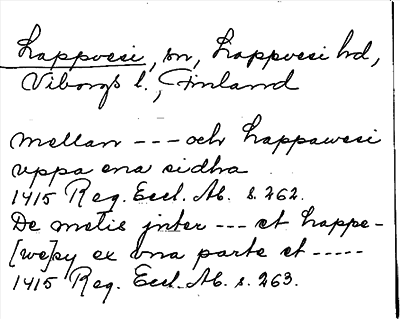 Lappvesi, sn, Lappvesi hd,
Viborgs l., Finland
mellan --- och Lappawesi
uppa ena sidha
1415 Reg. Eccl. Ab. s. 262.
De metis jnter --- et Lappe-
[we]sy ex vna parte et -----
1415 Reg. Eccl. Ab. s. 263.